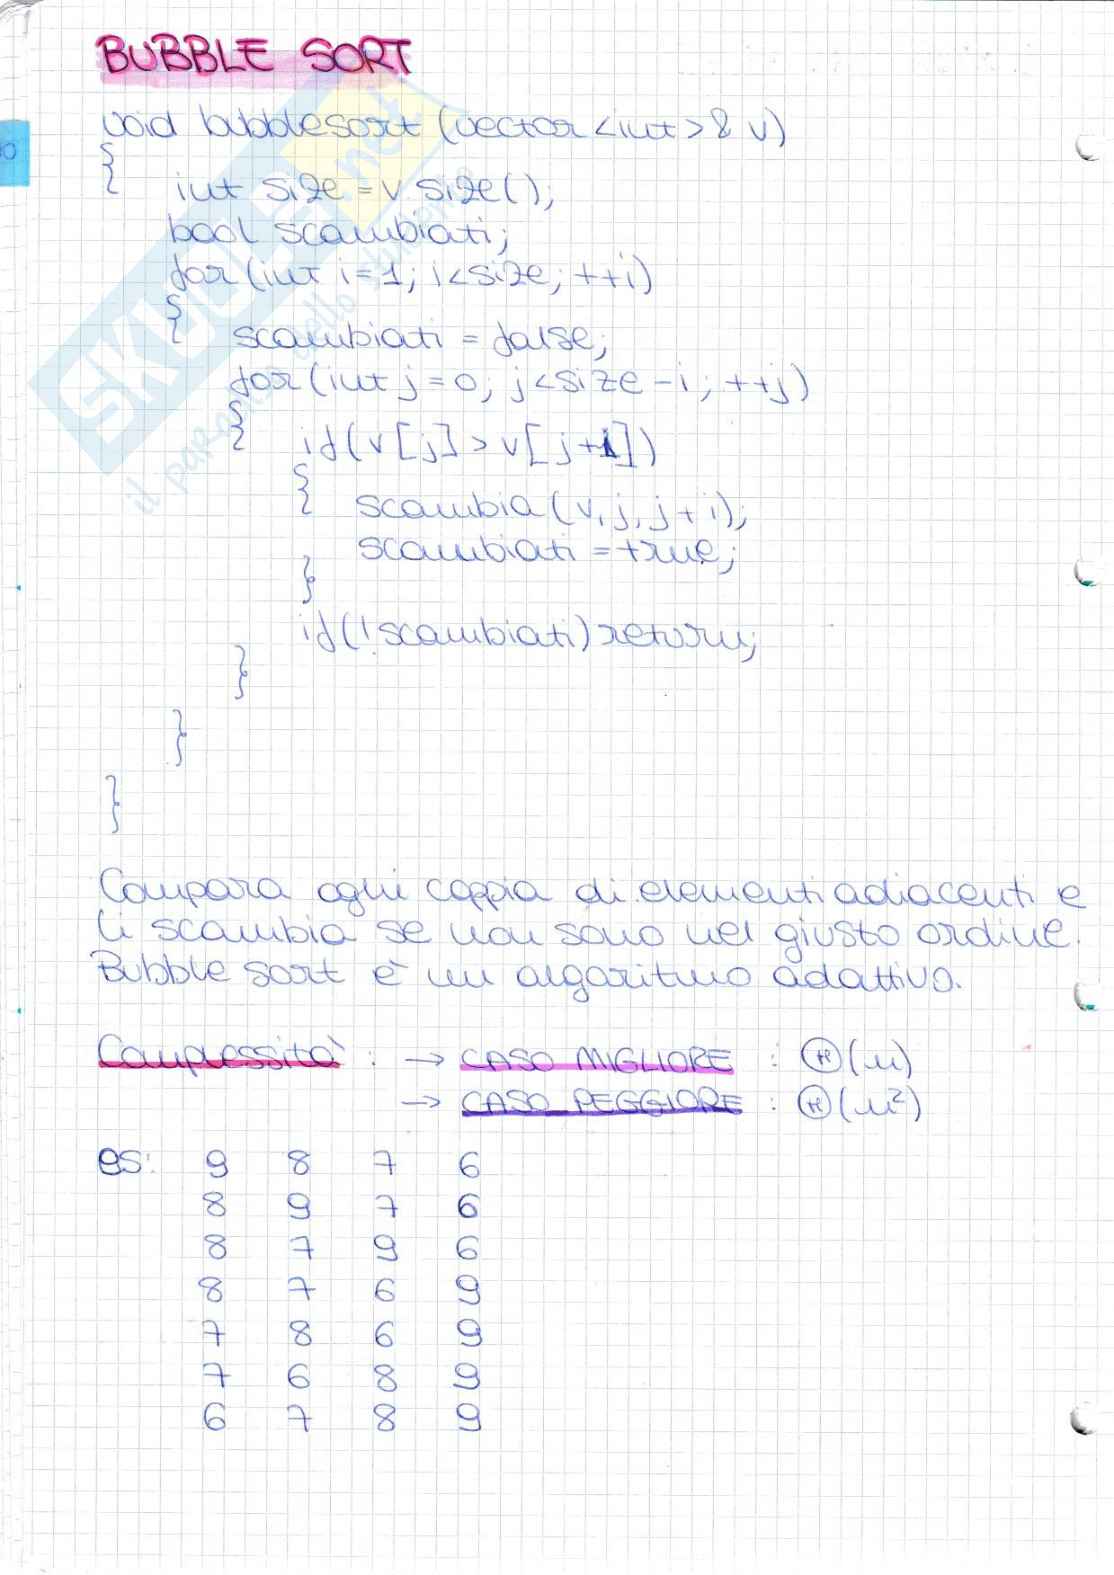 BUBBLE SORT
void bubblesort (vector <int> & v)
{
int size = v.size();
bool scambiati;
for(int i=1; i<size; ++i)
{
scambiati = false;
for(int j=0; j<size-i; ++j)
{
if(v[j]>v[j+1])
{
scambia(v,j,j+i);
scambiati = true;
}
if(!scambiati)return;
}
}
}
Compara ogni coppia di elementi adiacenti e
li scambia se non sono nel giusto ordine.
Bubble sort è un algoritmo adattivo.
Complessità : → CASO MIGLIORE : Θ(n)
→ CASO PEGGIORE : Θ(n²)
es: 9 8 7 6
8 9 7 6
8 7 9 6
8 7 6 9
7 8 6 9
7 6 8 9
6 7 8 9
SKUOLA.net
il paradiso dello studente